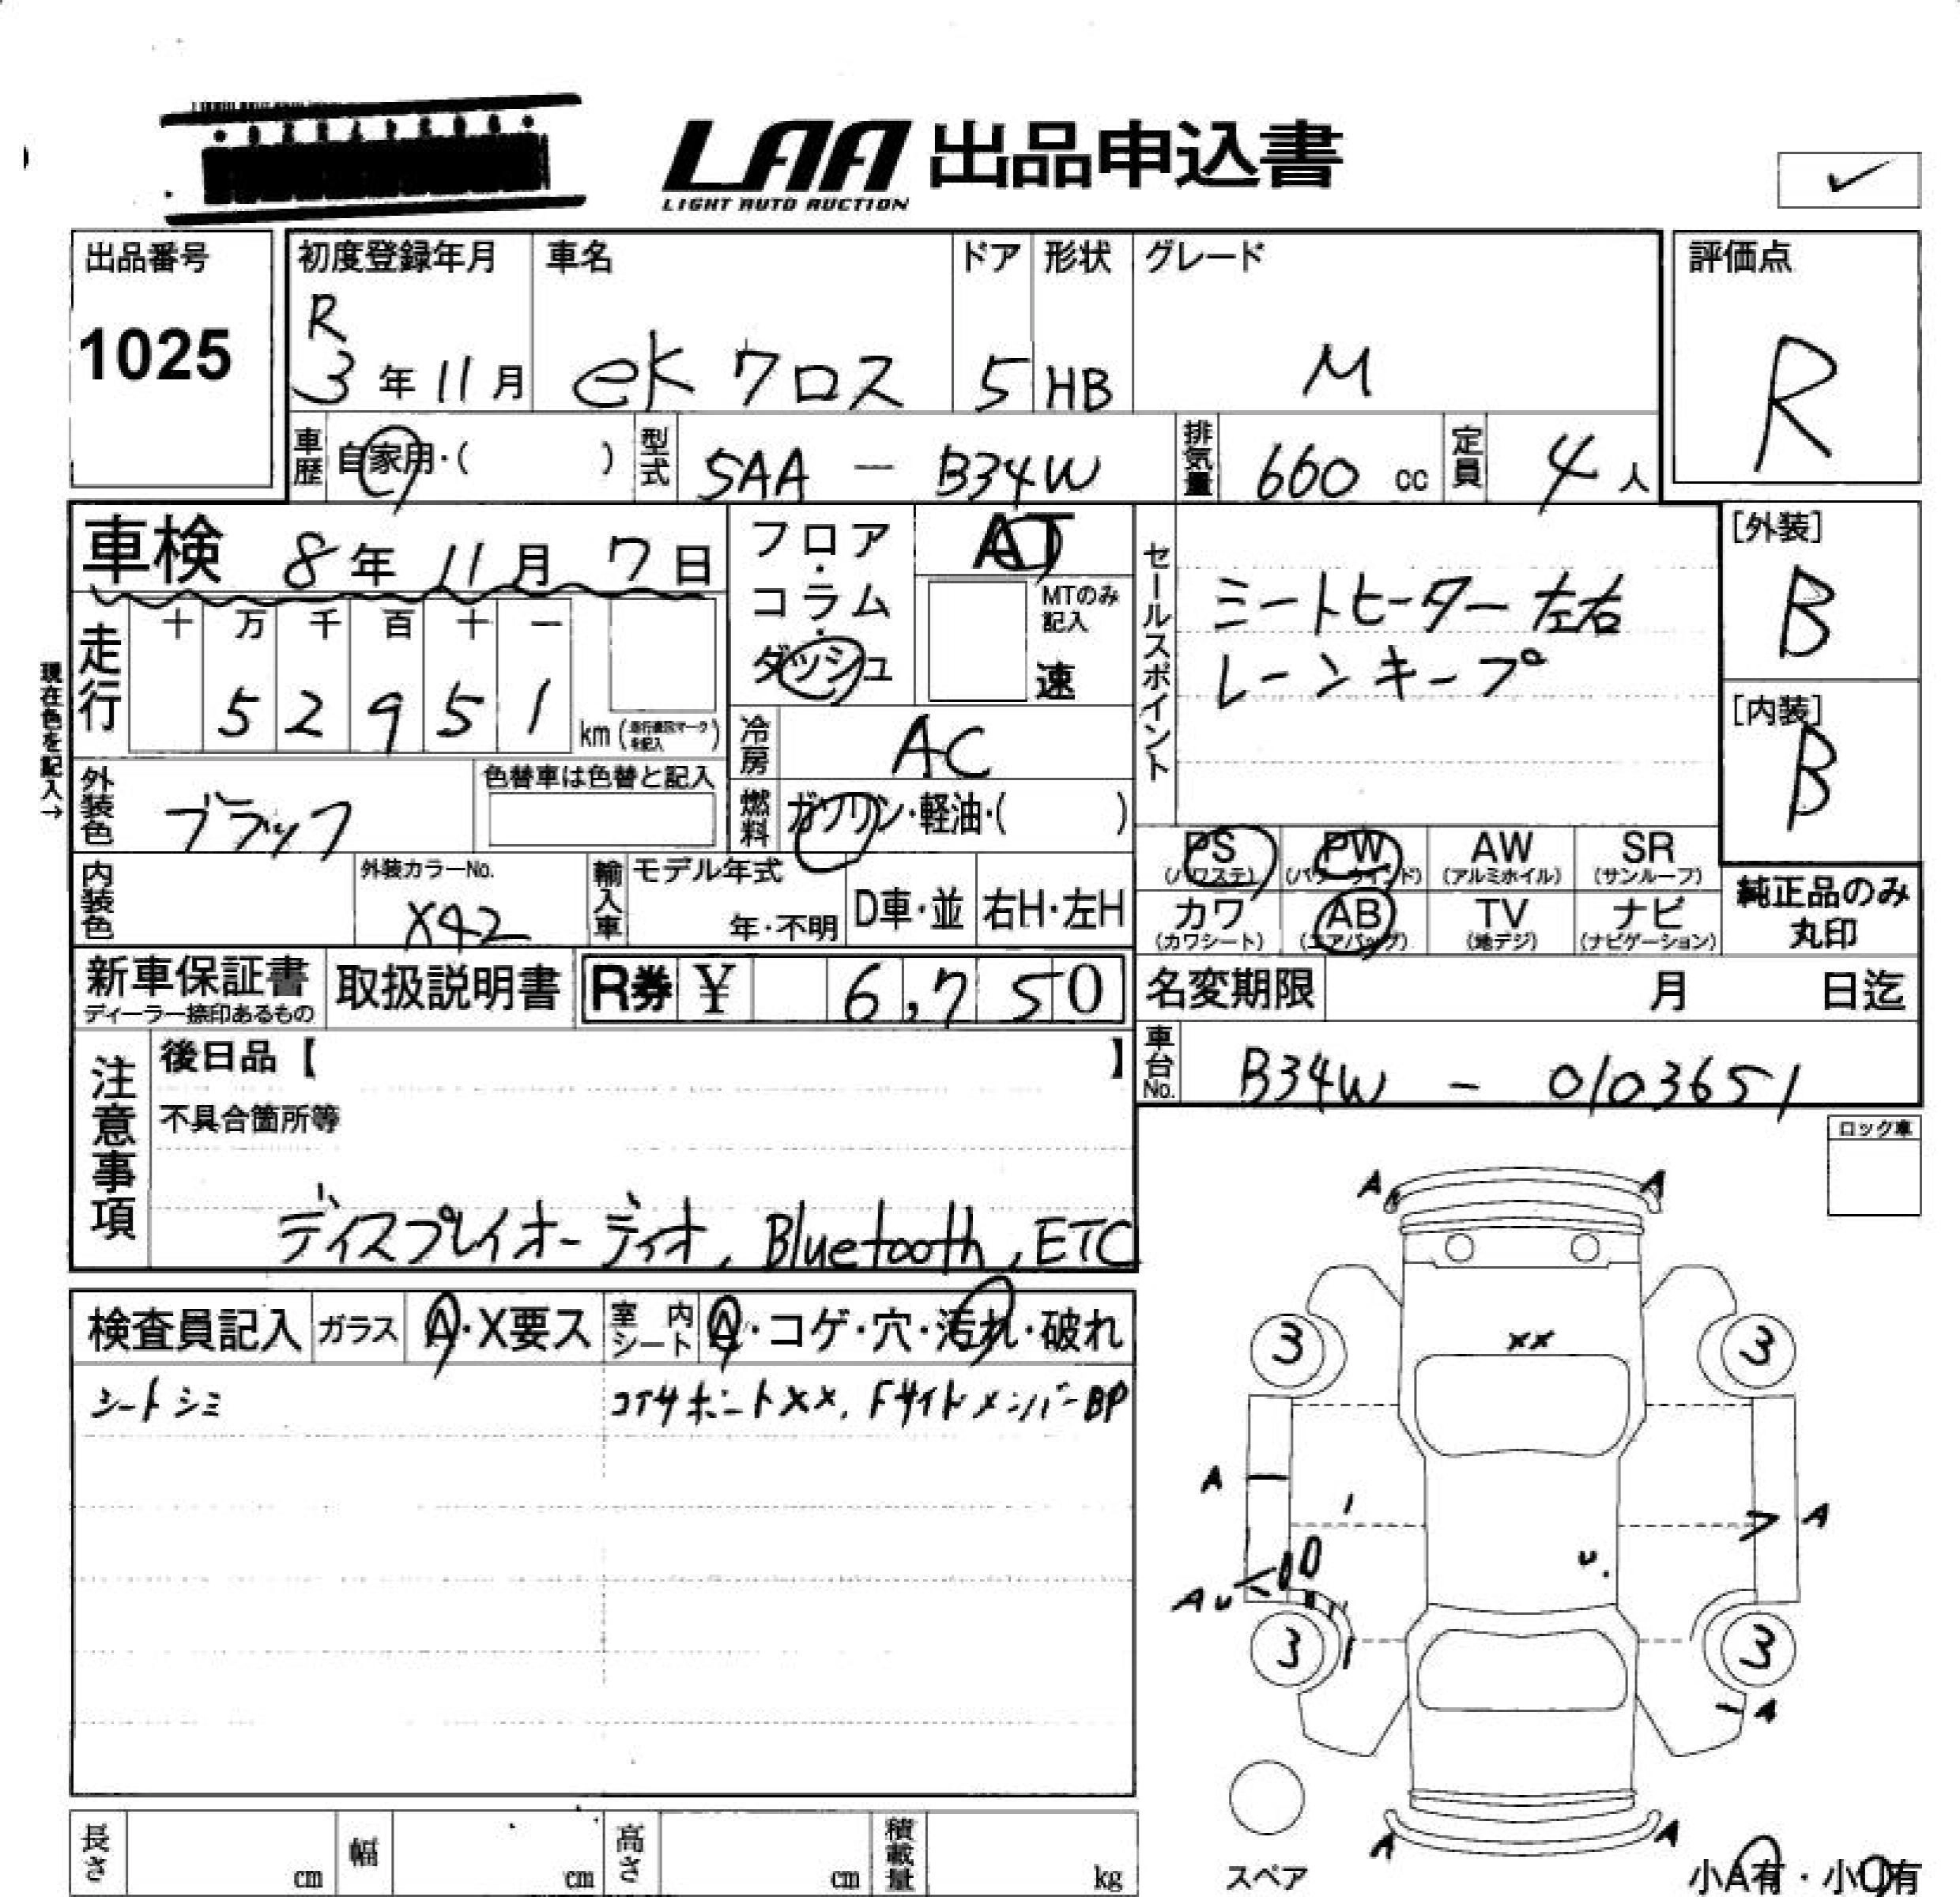 LAA 出品申込書
LIGHT AUTO AUCTION
出品番号
1025
初度登録年月
R
3年11月
車名
eK クロス
ドア
5
形状
HB
グレード
M
評価点
R
車歴
自家用・( )
型式
SAA - B34W
排気量
660 cc
定員
4人
車検 8年11月7日
現在色を記入→
走行
十 万 千 百 十 一
5 2 9 5 1
km
フロア・コラム・ダッシュ
AT
MTのみ記入
速
冷房
AC
燃料
ガソリン・軽油・( )
セールスポイント
シートヒーター 左右
レーンキープ
[外装]
B
[内装]
B
外装色
ブラック
色替車は色替と記入
内装色
外装カラーNo.
X42
輸入車
モデル年式
年・不明
D車・並
右H・左H
PS
(パワステ)
PW
(パワーウインド)
AW
(アルミホイル)
SR
(サンルーフ)
カワ
(カワシート)
AB
(エアバッグ)
TV
(地デジ)
ナビ
(ナビゲーション)
純正品のみ
丸印
新車保証書
ディーラー捺印あるもの
取扱説明書
R券 ¥ 6,750
名変期限 月 日迄
車台No.
B34W - 0103651
注意事項
後日品【 】
不具合箇所等
ディスプレイオーディオ, Bluetooth, ETC
ロック車
検査員記入
ガラス
A・X要ス
室内シート
A・コゲ・穴・汚れ・破れ
シートシミ
コアサポートXX, FサイドメンバーBP
A A
XX
3 3
A
A
U
AU
3 3
A
A A
スペア
小A有・小U有
長さ cm
幅 cm
高さ cm
積載量 kg